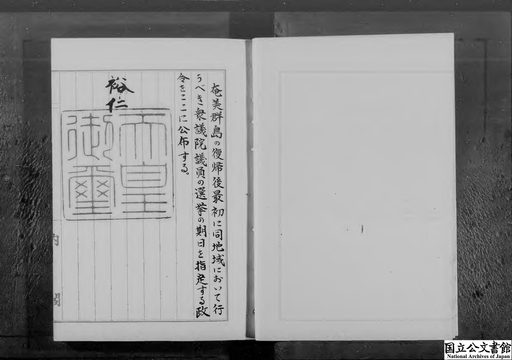 奄美群島の復帰後最初に同地域において行
うべき衆議院議員の選挙の期日を指定する政
令をここに公布する。
裕仁
天皇
御璽
内
閣
国立公文書館
National Archives of Japan